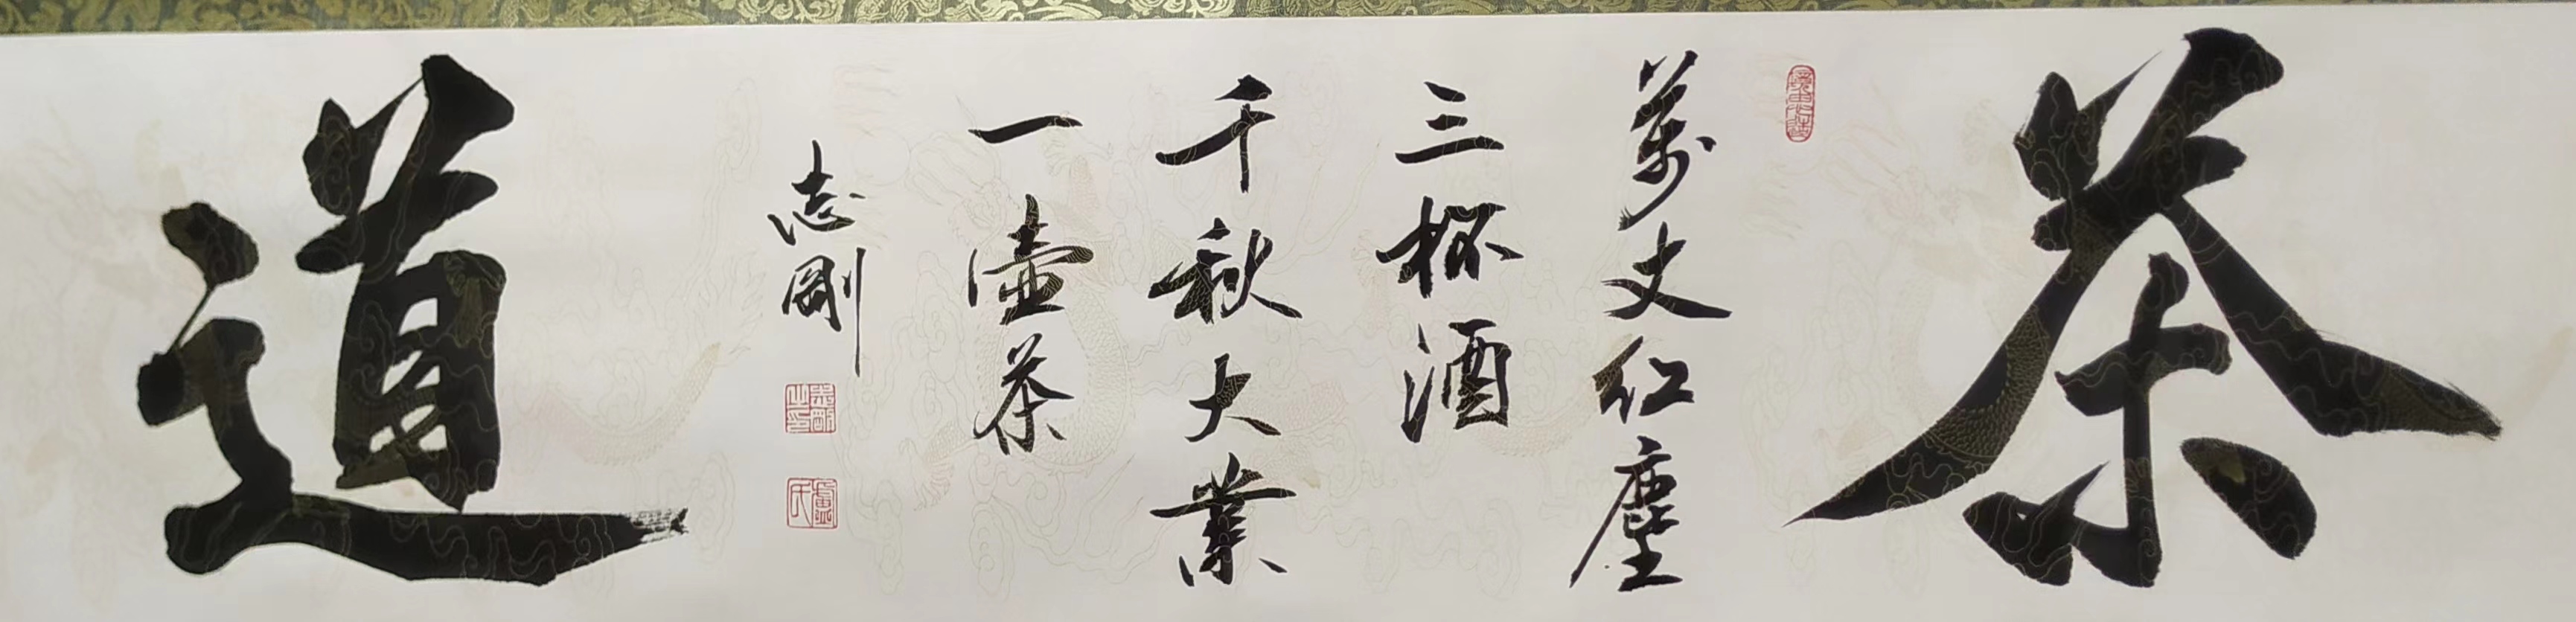 茶
萬丈紅塵
三杯酒
千秋大業
一壺茶
志剛
盧氏
道